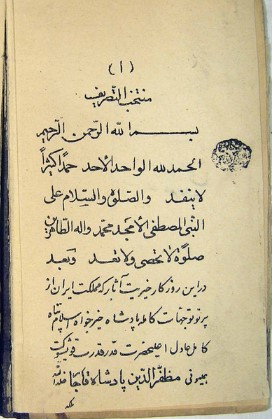 (١)
منتخب التصریف
بسم الله الرحمن الرحیم
الحمد لله الواحد الاحد حمداً کثیراً
لا ینفد والصلوة والسلام علی
النبی المصطفی الامجد محمد واله الطاهرین
صلوة لا تحصی ولا تعد وبعد
در این روزگار خیریت آثار که مملکت ایران از
پرتو توجهات کامله پادشاه خیرخواه اسلام پناه
کامل عادل اعلیحضرت قدر قدرت قوی شوکت
همیونی مظفر الدین پادشاه قاجار